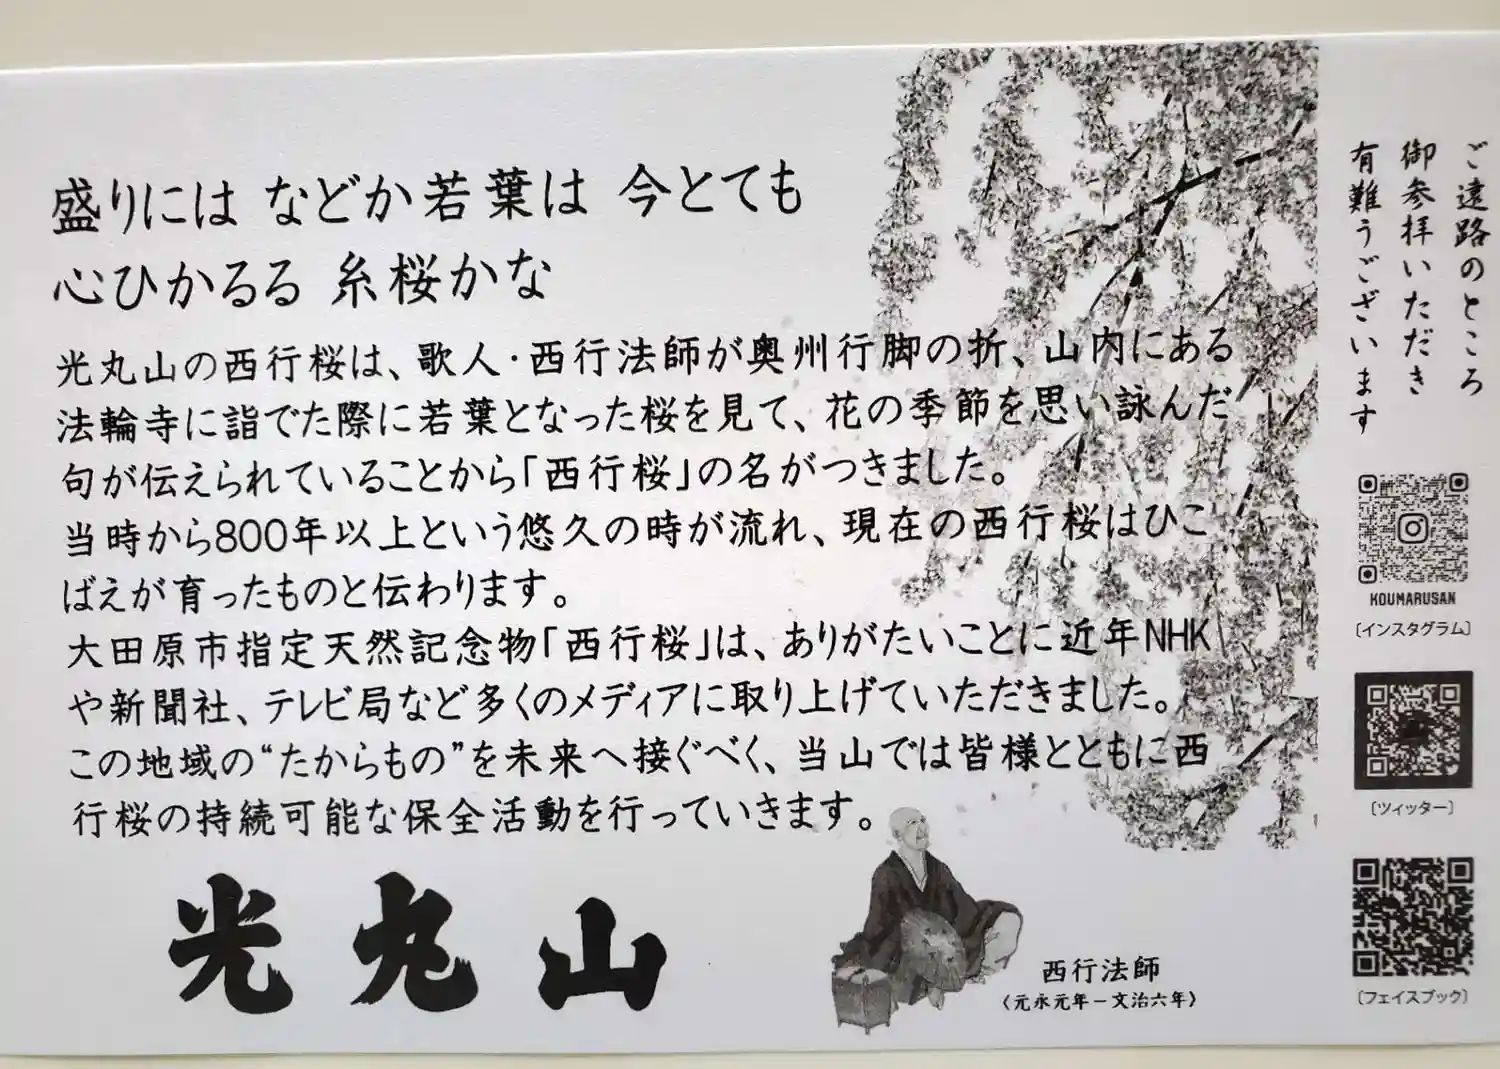 盛りには などか若葉は 今とても
心ひかるる 糸桜かな
光丸山の西行桜は、歌人・西行法師が奥州行脚の折、山内にある
法輪寺に詣でた際に若葉となった桜を見て、花の季節を思い詠んだ
句が伝えられていることから「西行桜」の名がつきました。
当時から800年以上という悠久の時が流れ、現在の西行桜はひこ
ばえが育ったものと伝わります。
大田原市指定天然記念物「西行桜」は、ありがたいことに近年NHK
や新聞社、テレビ局など多くのメディアに取り上げていただきました。
この地域の“たからもの”を未来へ接ぐべく、当山では皆様とともに西
行桜の持続可能な保全活動を行っていきます。
光丸山
西行法師
〈元永元年－文治六年〉
ご遠路のところ
御参拝いただき
有難うございます
KOUMARUSAN
〔インスタグラム〕
〔ツィッター〕
〔フェイスブック〕